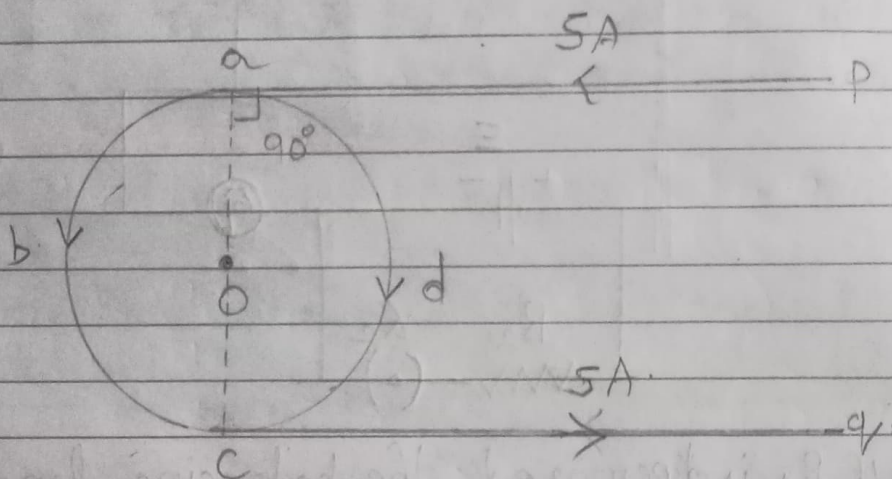 5A
a
P
90°
b
O
d
5A
C
q